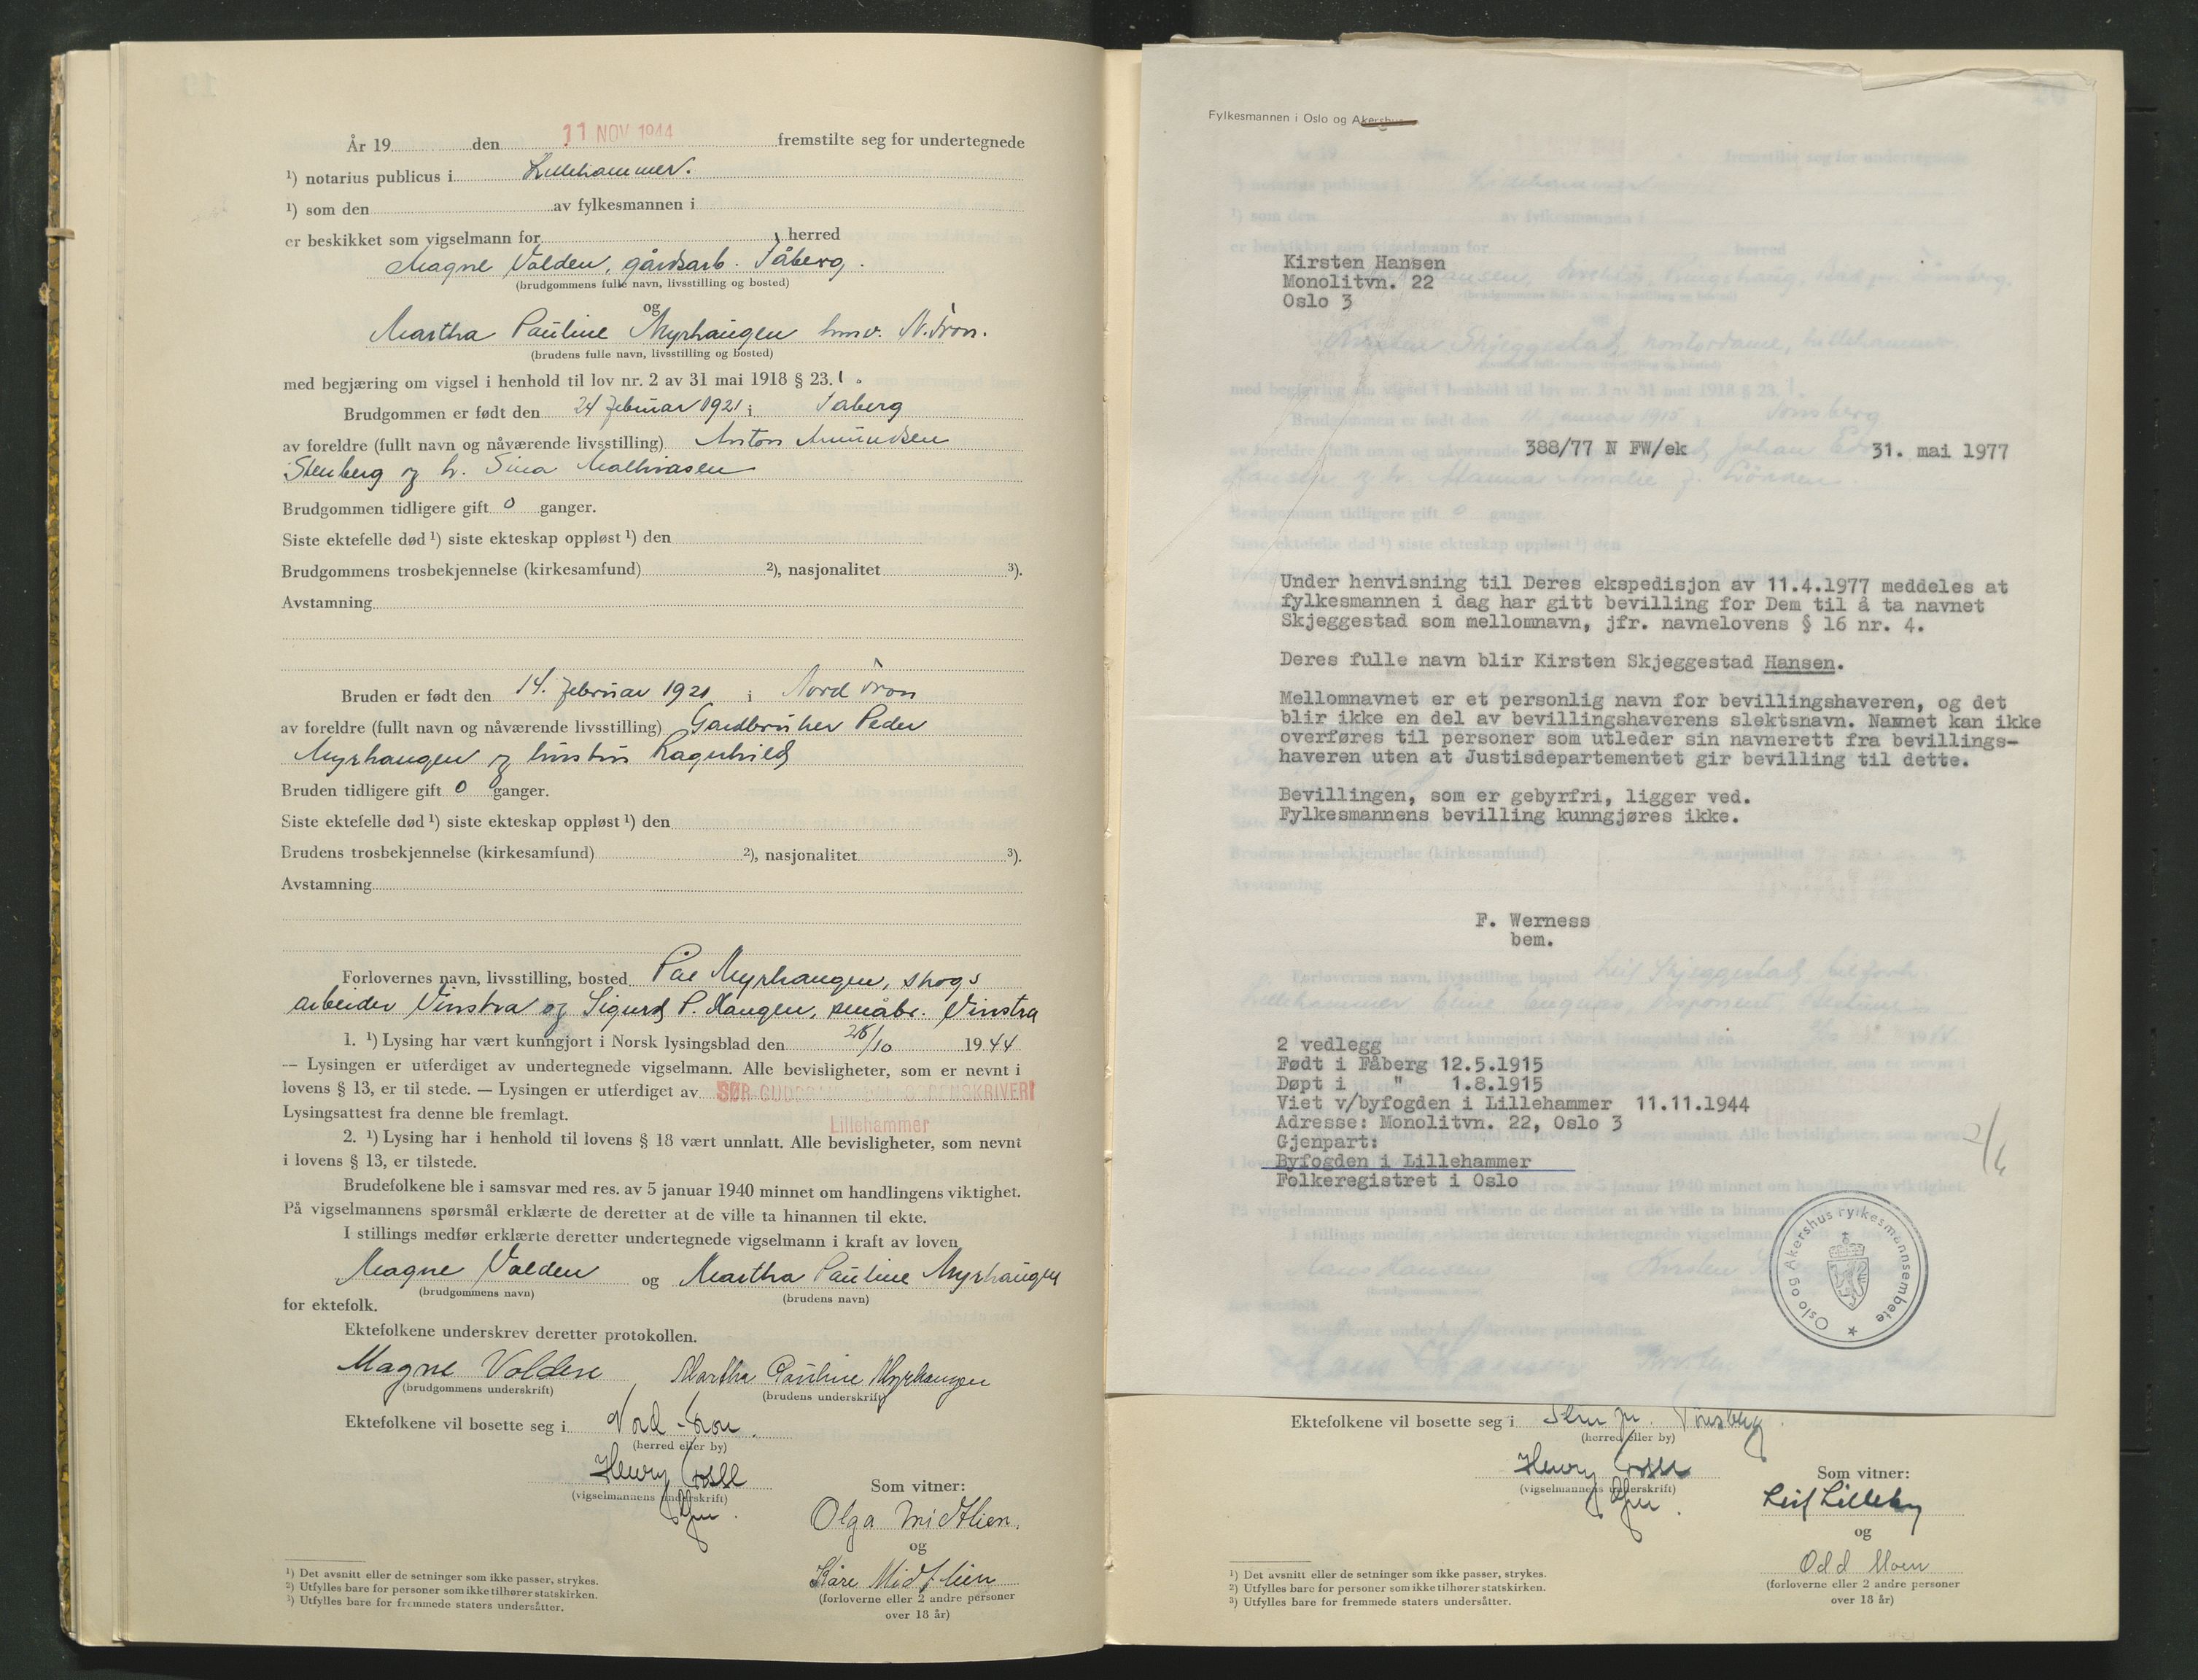 År 19 den 11 NOV 1944 fremstilte seg for undertegnede
¹) notarius publicus i Lillehammer.
¹) som den av fylkesmannen i
er beskikket som vigselmann for herred
Magne Volden, gårdsarb. Fåberg.
(brudgommens fulle navn, livsstilling og bosted)
og
Martha Pauline Myrhaugen husv. N. Fron.
(brudens fulle navn, livsstilling og bosted)
med begjæring om vigsel i henhold til lov nr. 2 av 31 mai 1918 § 23.1.
Brudgommen er født den 24 februar 1921 i Fåberg
av foreldre (fullt navn og nåværende livsstilling) Anton Amundsen
Stenberg og h. Sina Mathiasen
Brudgommen tidligere gift 0 ganger.
Siste ektefelle død ¹) siste ekteskap oppløst ¹) den
Brudgommens trosbekjennelse (kirkesamfund) ²), nasjonalitet ³).
Avstamning
Bruden er født den 14. februar 1921 i Nord Fron
av foreldre (fullt navn og nåværende livsstilling) Gardbruker Peder
Myrhaugen og hustru Ragnhild
Bruden tidligere gift 0 ganger.
Siste ektefelle død ¹) siste ekteskap oppløst ¹) den
Brudens trosbekjennelse (kirkesamfund) ²), nasjonalitet ³).
Avstamning
Forlovernes navn, livsstilling, bosted Pål Myrhaugen, skogs
arbeider Vinstra og Sigurd P. Haugen, småbr. Vinstra
1. ¹) Lysing har vært kunngjort i Norsk lysingsblad den 26/10 1944
— Lysingen er utferdiget av undertegnede vigselmann. Alle bevisligheter, som er nevnt i
lovens § 13, er til stede. — Lysingen er utferdiget av SØR-GUDBRANDSDAL SORENSKRIVERI
Lysingsattest fra denne ble fremlagt.
Lillehammer
2. ¹) Lysing har i henhold til lovens § 18 vært unnlatt. Alle bevisligheter, som nevnt
i lovens § 13, er tilstede.
Brudefolkene ble i samsvar med res. av 5 januar 1940 minnet om handlingens viktighet.
På vigselmannens spørsmål erklærte de deretter at de ville ta hinannen til ekte.
I stillings medfør erklærte deretter undertegnede vigselmann i kraft av loven
Magne Volden og Martha Pauline Myrhaugen
(brudgommens navn) (brudens navn)
for ektefolk.
Ektefolkene underskrev deretter protokollen.
Magne Volden Martha Pauline Myrhaugen
(brudgommens underskrift) (brudens underskrift)
Ektefolkene vil bosette seg i Nord-Fron.
(herred eller by)
Henry
(vigselmannens underskrift)
Som vitner:
Olga Midtlien.
og
Kåre Midtlien
(forloverne eller 2 andre personer
over 18 år)
¹) Det avsnitt eller de setninger som ikke passer, strykes.
²) Utfylles bare for personer som ikke tilhører statskirken.
³) Utfylles bare for fremmede staters undersåtter.
Fylkesmannen i Oslo og Akershus
Kirsten Hansen
Monolitvn. 22
Oslo 3
388/77 N FW/ek 31. mai 1977
Under henvisning til Deres ekspedisjon av 11.4.1977 meddeles at
fylkesmannen i dag har gitt bevilling for Dem til å ta navnet
Skjeggestad som mellomnavn, jfr. navnelovens § 16 nr. 4.
Deres fulle navn blir Kirsten Skjeggestad Hansen.
Mellomnavnet er et personlig navn for bevillingshaveren, og det
blir ikke en del av bevillingshaverens slektsnavn. Navnet kan ikke
overføres til personer som utleder sin navnerett fra bevillings-
haveren uten at Justisdepartementet gir bevilling til dette.
Bevillingen, som er gebyrfri, ligger ved.
Fylkesmannens bevilling kunngjøres ikke.
F. Werness
bem.
2 vedlegg
Født i Fåberg 12.5.1915
Døpt i " 1.8.1915
Viet v/byfogden i Lillehammer 11.11.1944
Adresse: Monolitvn. 22, Oslo 3
Gjenpart:
Byfogden i Lillehammer
Folkeregistret i Oslo
2/6
Oslo og Akershus fylkesmannsembete
Ektefolkene vil bosette seg i Sem pr. Tønsberg.
(herred eller by)
Henry
(vigselmannens underskrift)
Som vitner:
Leif Lilleby
og
Odd Moen
(forloverne eller 2 andre personer
over 18 år)
¹) Det avsnitt eller de setninger som ikke passer, strykes.
²) Utfylles bare for personer som ikke tilhører statskirken.
³) Utfylles bare for fremmede staters undersåtter.